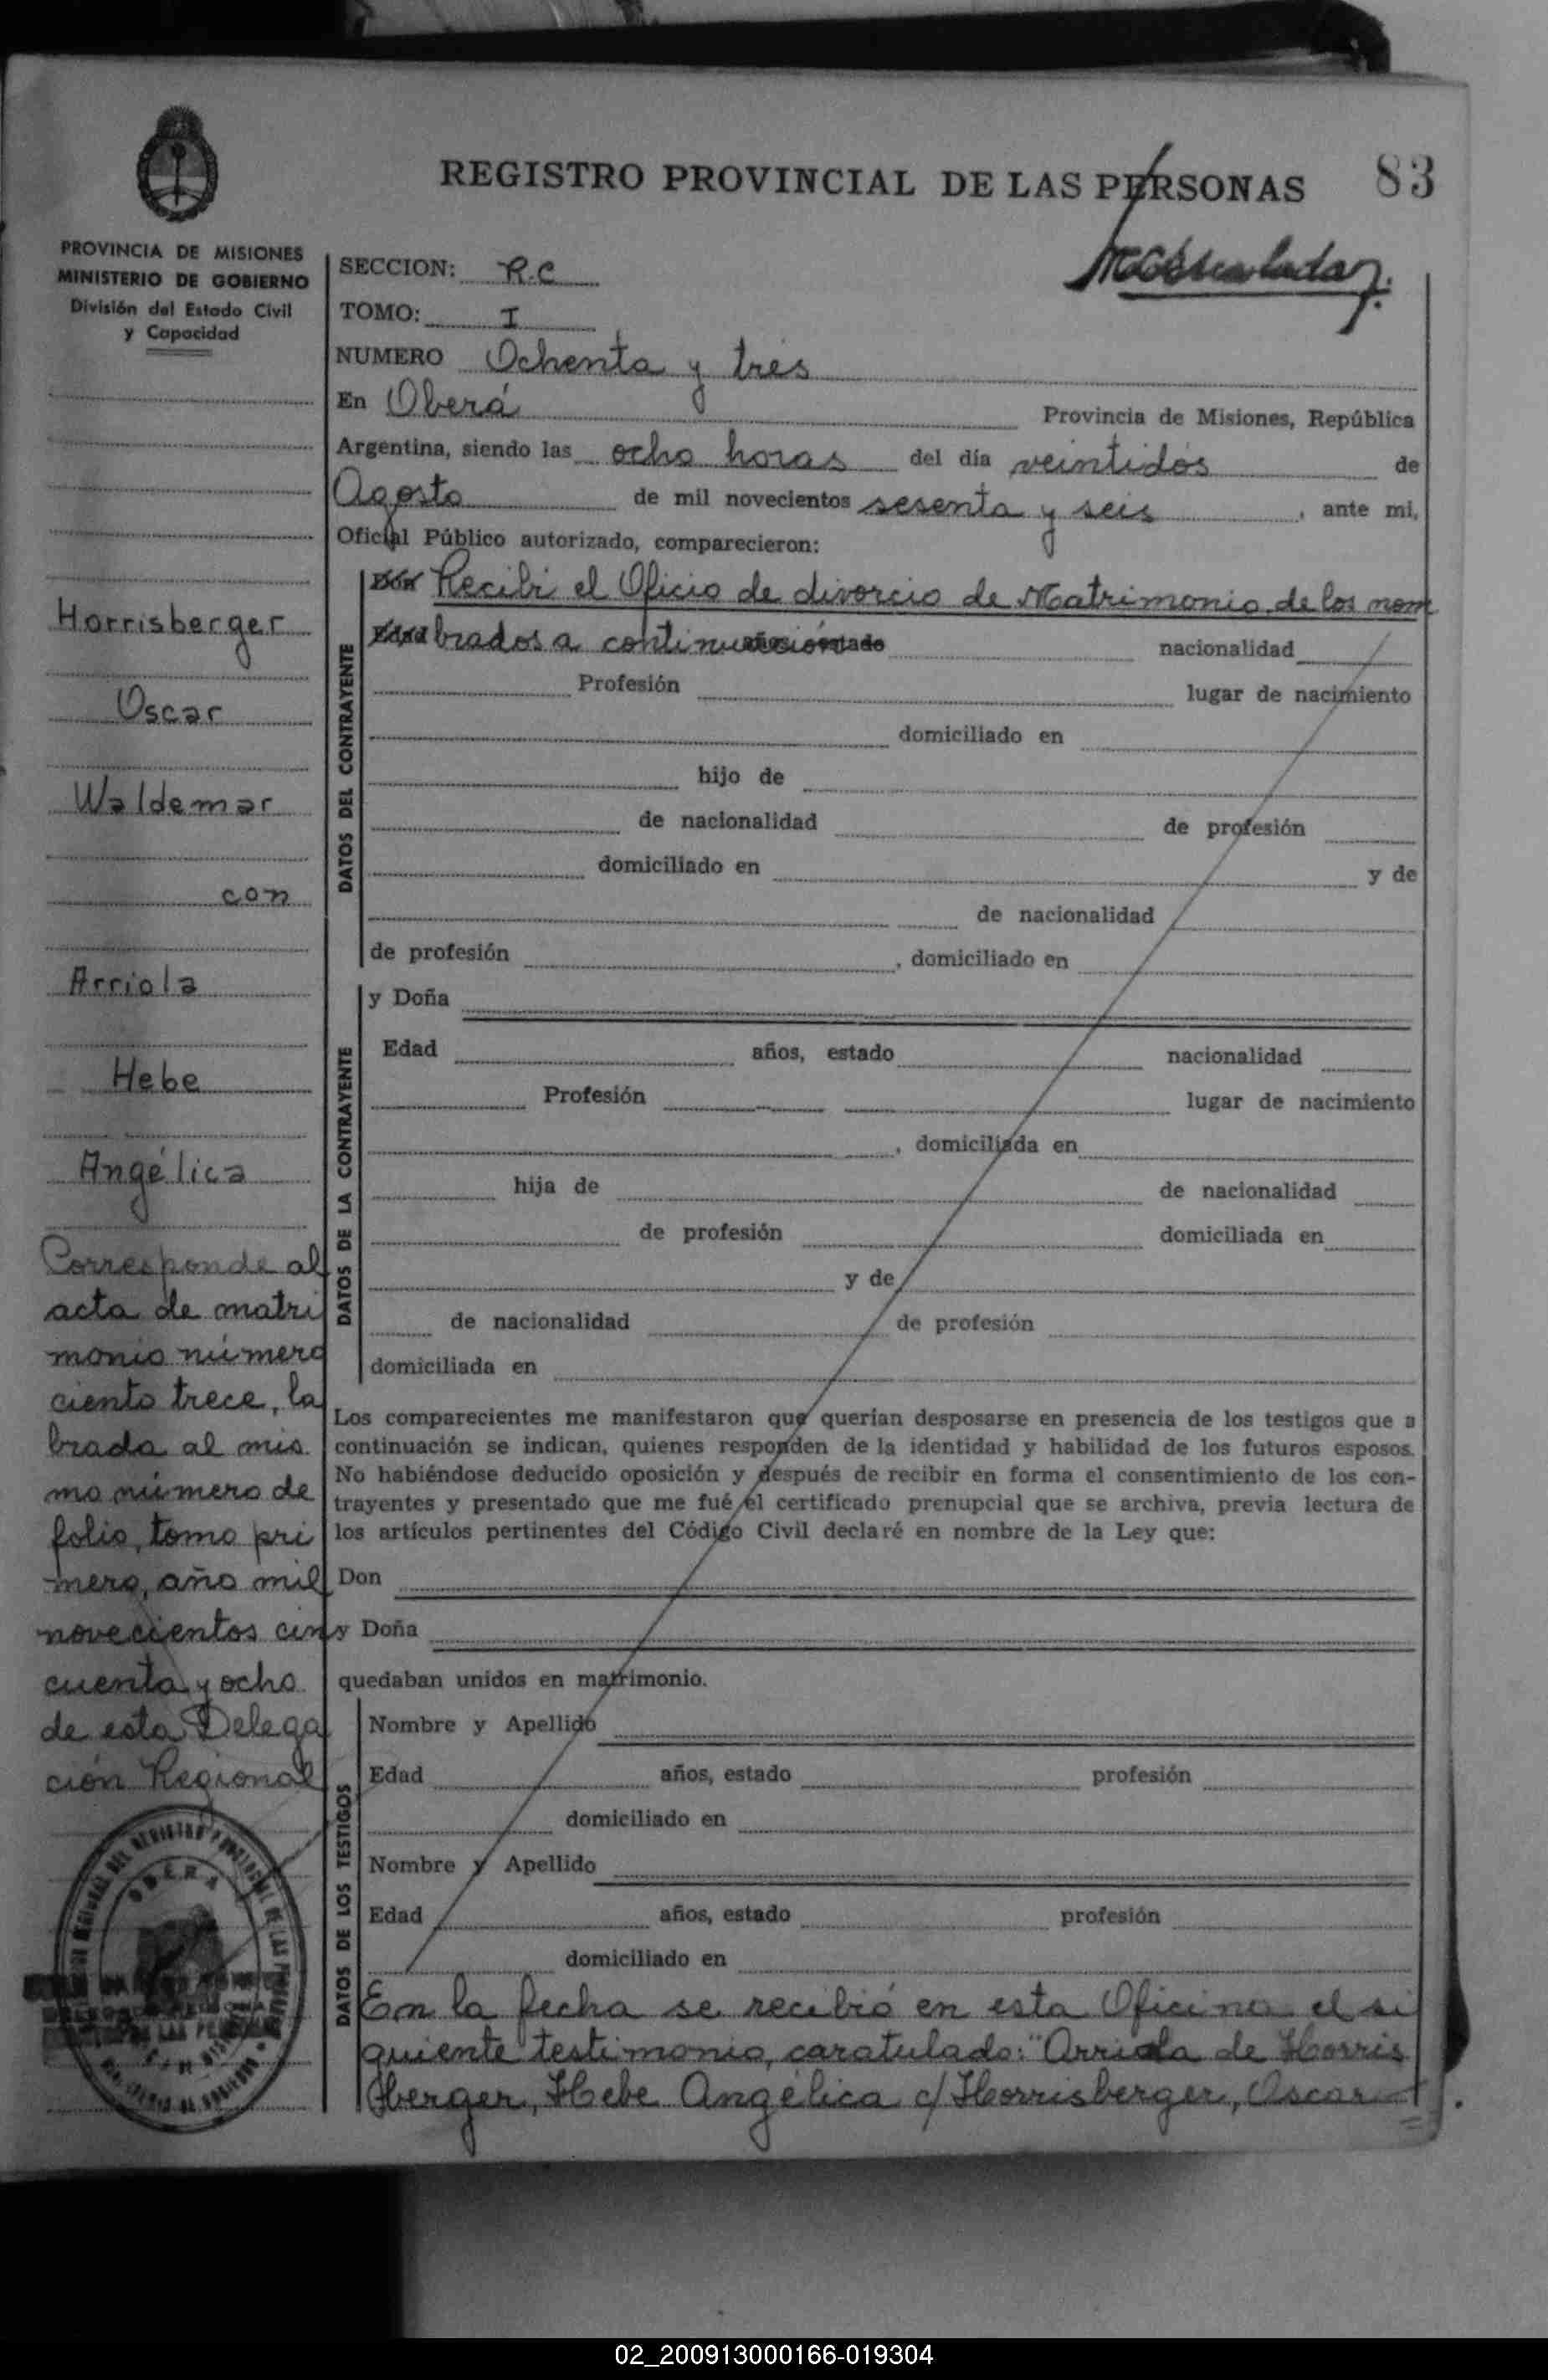 REGISTRO PROVINCIAL DE LAS PERSONAS 83
PROVINCIA DE MISIONES
MINISTERIO DE GOBIERNO
División del Estado Civil
y Capacidad
Horrisberger
Oscar
Waldemar
con
Arriola
Hebe
Angélica
Corresponde al
acta de matri
monio número
ciento trece, la
brada al mis
mo número de
folio, tomo pri
mero, año mil
novecientos cin
cuenta y ocho
de esta Delega
ción Regional
OBERA
SECCION: R.C
TOMO: I
NUMERO Ochenta y tres
En Oberá Provincia de Misiones, República
Argentina, siendo las ocho horas del día veintidós de
Agosto de mil novecientos sesenta y seis, ante mi,
Oficial Público autorizado, comparecieron:
DATOS DEL CONTRAYENTE
Don Recibí el Oficio de divorcio de Matrimonio de los nom
Edad brados a continuación años, estado nacionalidad
Profesión lugar de nacimiento
domiciliado en
hijo de
de nacionalidad de profesión
domiciliado en y de
de nacionalidad
de profesión , domiciliado en
DATOS DE LA CONTRAYENTE
y Doña
Edad años, estado nacionalidad
Profesión lugar de nacimiento
, domiciliada en
hija de de nacionalidad
de profesión domiciliada en
y de
de nacionalidad de profesión
domiciliada en
Los comparecientes me manifestaron que querían desposarse en presencia de los testigos que a
continuación se indican, quienes responden de la identidad y habilidad de los futuros esposos.
No habiéndose deducido oposición y después de recibir en forma el consentimiento de los con-
trayentes y presentado que me fué el certificado prenupcial que se archiva, previa lectura de
los artículos pertinentes del Código Civil declaré en nombre de la Ley que:
Don
y Doña
quedaban unidos en matrimonio.
DATOS DE LOS TESTIGOS
Nombre y Apellido
Edad años, estado profesión
domiciliado en
Nombre y Apellido
Edad años, estado profesión
domiciliado en
En la fecha se recibió en esta Oficina el si
guiente testimonio, caratulado: "Arriola de Horris
berger, Hebe Angélica c/ Horrisberger, Oscar
02_200913000166-019304